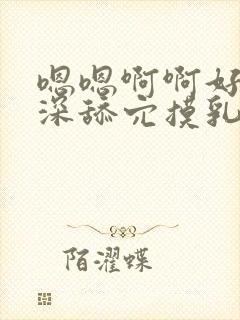 嗯嗯啊啊好
深舔穴摸乳
陌濯蝶